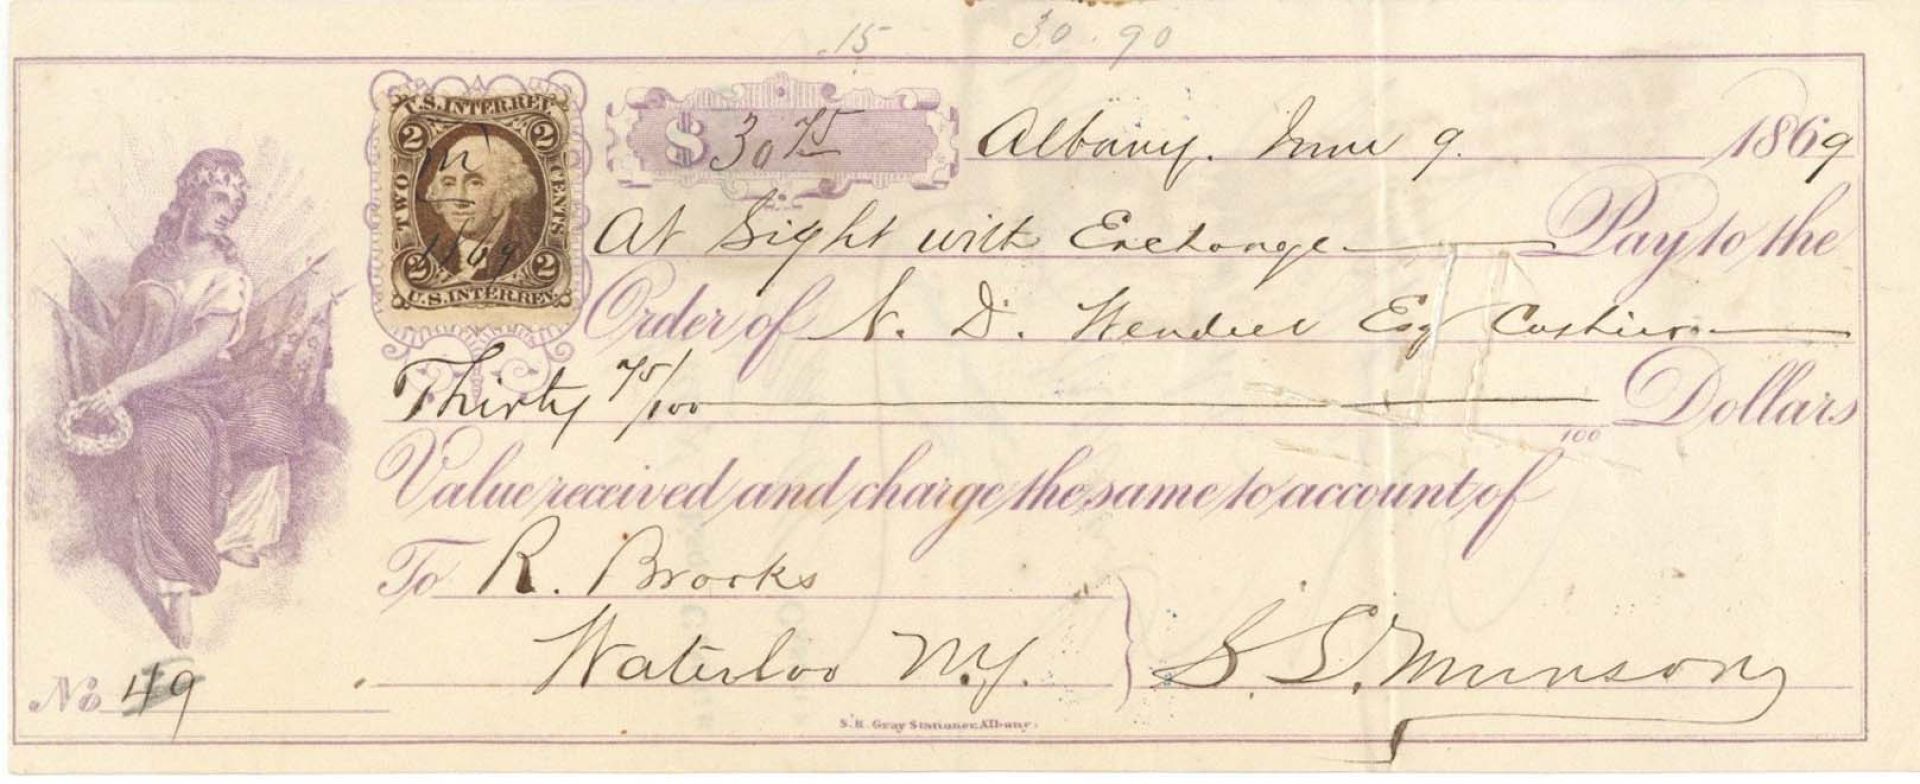 .15 30.90
U.S. INTER. REV.
2 2
TWO CENTS
M
1869
2 2
U.S. INTER. REV.
$ 30 75
Albany. June 9. 1869
At Sight with Exchange Pay to the
Order of N. D. Wendell Esq Cashier
Thirty 75/100 Dollars
100
Value received and charge the same to account of
To R. Brooks
Waterloo N.Y. S. S. Munson
No 49
S. R. Gray Stationer, Albany.